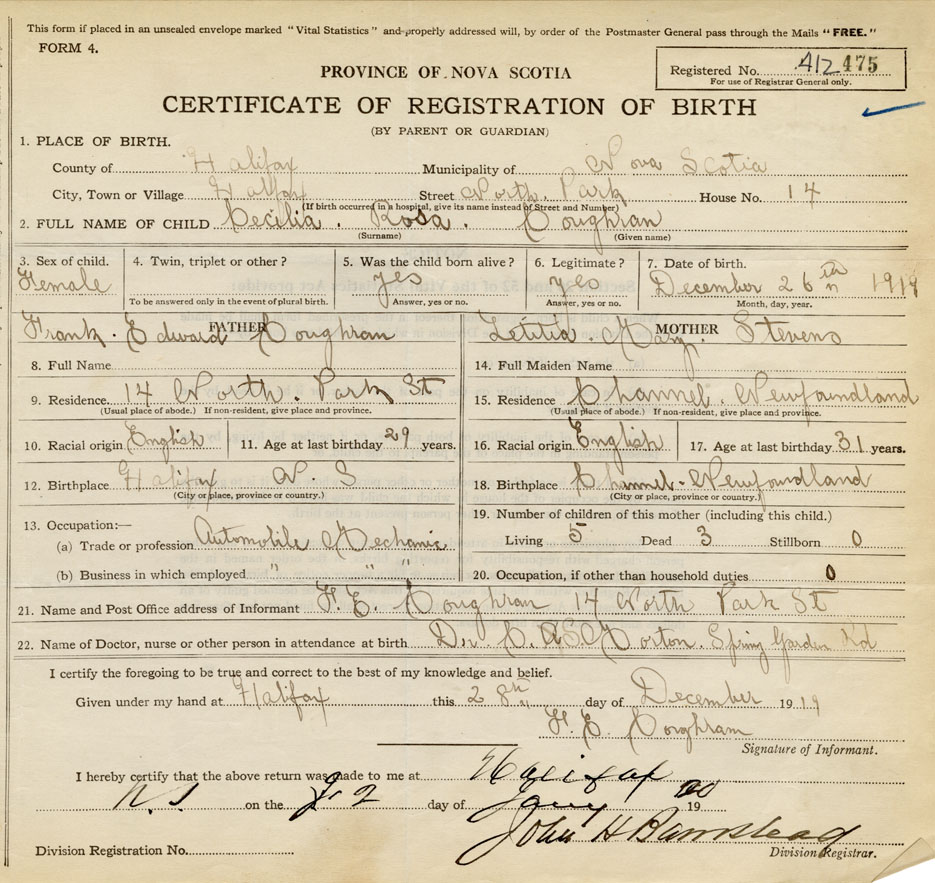 This form if placed in an unsealed envelope marked "Vital Statistics" and properly addressed will, by order of the Postmaster General pass through the Mails "FREE."
FORM 4.
Registered No. 412 475
For use of Registrar General only.
PROVINCE OF NOVA SCOTIA
CERTIFICATE OF REGISTRATION OF BIRTH
(BY PARENT OR GUARDIAN)
1. PLACE OF BIRTH.
County of Halifax Municipality of Nova Scotia
City, Town or Village Halifax Street North Park House No. 14
(If birth occurred in a hospital, give its name instead of Street and Number)
2. FULL NAME OF CHILD Cecilia . Rosa . Coughran
(Surname) (Given name)
3. Sex of child. 4. Twin, triplet or other ? 5. Was the child born alive ? 6. Legitimate ? 7. Date of birth.
Female yes yes December 26th 1919
To be answered only in the event of plural birth. Answer, yes or no. Answer, yes or no. Month, day, year.
FATHER MOTHER
Frank . Edward Coughran Letitia . Mary . Stevens
8. Full Name 14. Full Maiden Name
9. Residence 14 North . Park St 15. Residence Channel . Newfoundland
(Usual place of abode.) If non-resident, give place and province. (Usual place of abode.) If non-resident, give place and province.
10. Racial origin English 11. Age at last birthday 29 years. 16. Racial origin English 17. Age at last birthday 31 years.
12. Birthplace Halifax N. S 18. Birthplace Channel - Newfoundland
(City or place, province or country.) (City or place, province or country.)
13. Occupation:— 19. Number of children of this mother (including this child.)
(a) Trade or profession Automobile Mechanic Living 5 Dead 3 Stillborn 0
(b) Business in which employed " " " 20. Occupation, if other than household duties 0
21. Name and Post Office address of Informant F. E. Coughran 14 North Park St
22. Name of Doctor, nurse or other person in attendance at birth Dr. Morton . Spring Garden Rd
I certify the foregoing to be true and correct to the best of my knowledge and belief.
Given under my hand at Halifax this 28th day of December 1919
F. E. Coughran
Signature of Informant.
I hereby certify that the above return was made to me at Halifax
N.S on the 2 day of Jany 1920
John H Barnstead
Division Registration No. Division Registrar.